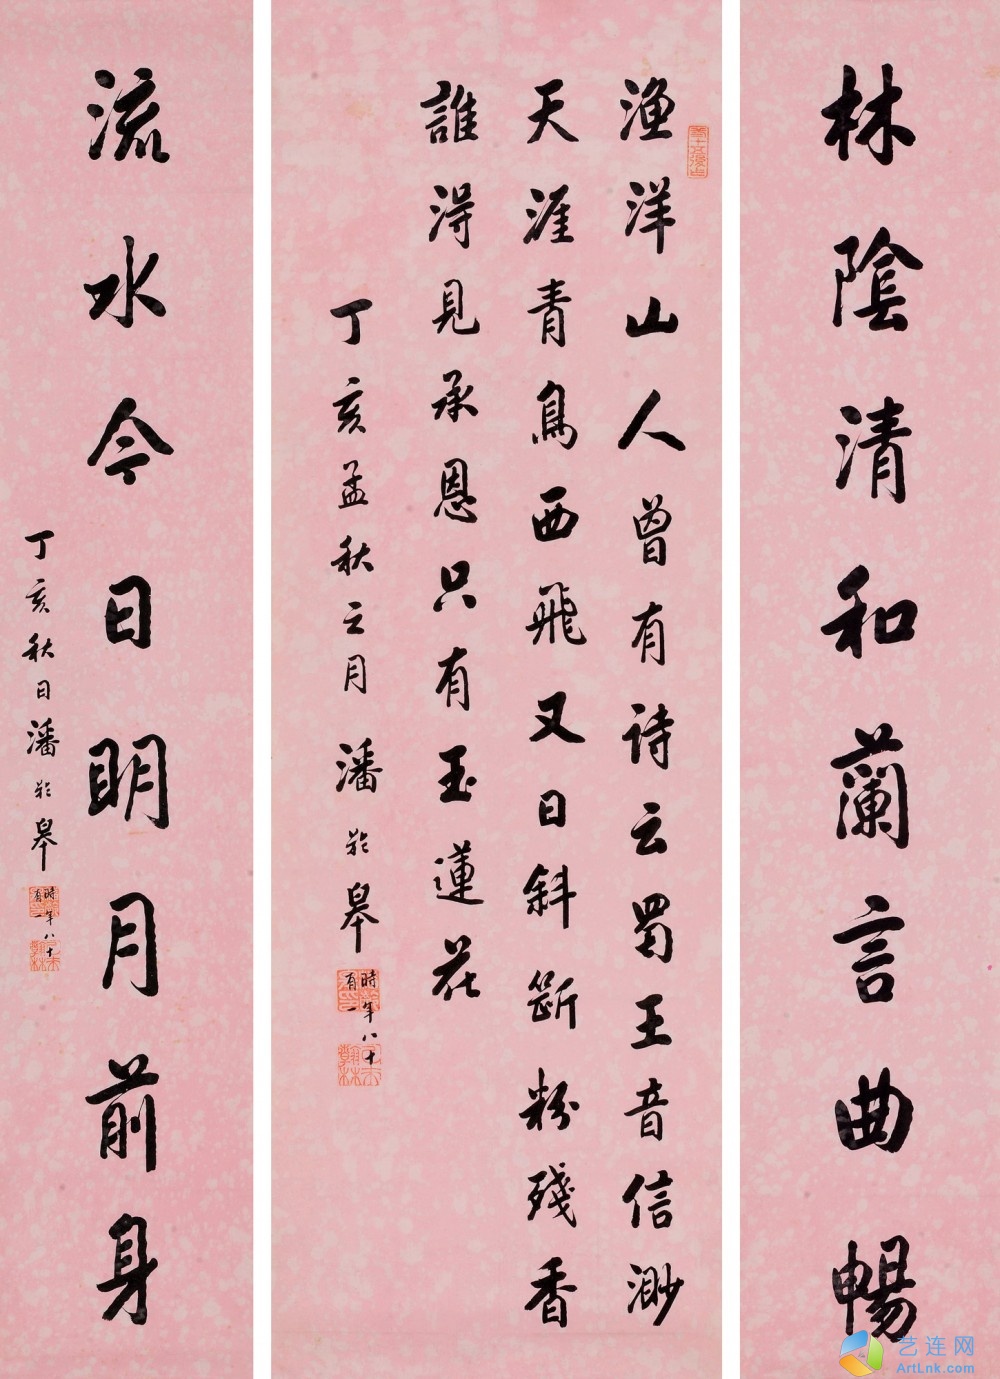 林陰清和蘭言曲暢
漁洋山人曾有詩云蜀王音信渺
天涯青鳥西飛又日斜斷粉殘香
誰得見承恩只有玉蓮花
丁亥孟秋之月潘齡皋
時年八十有一
流水今日明月前身
丁亥秋日潘齡皋
時年八十有一
艺连网
ArtLnk.com